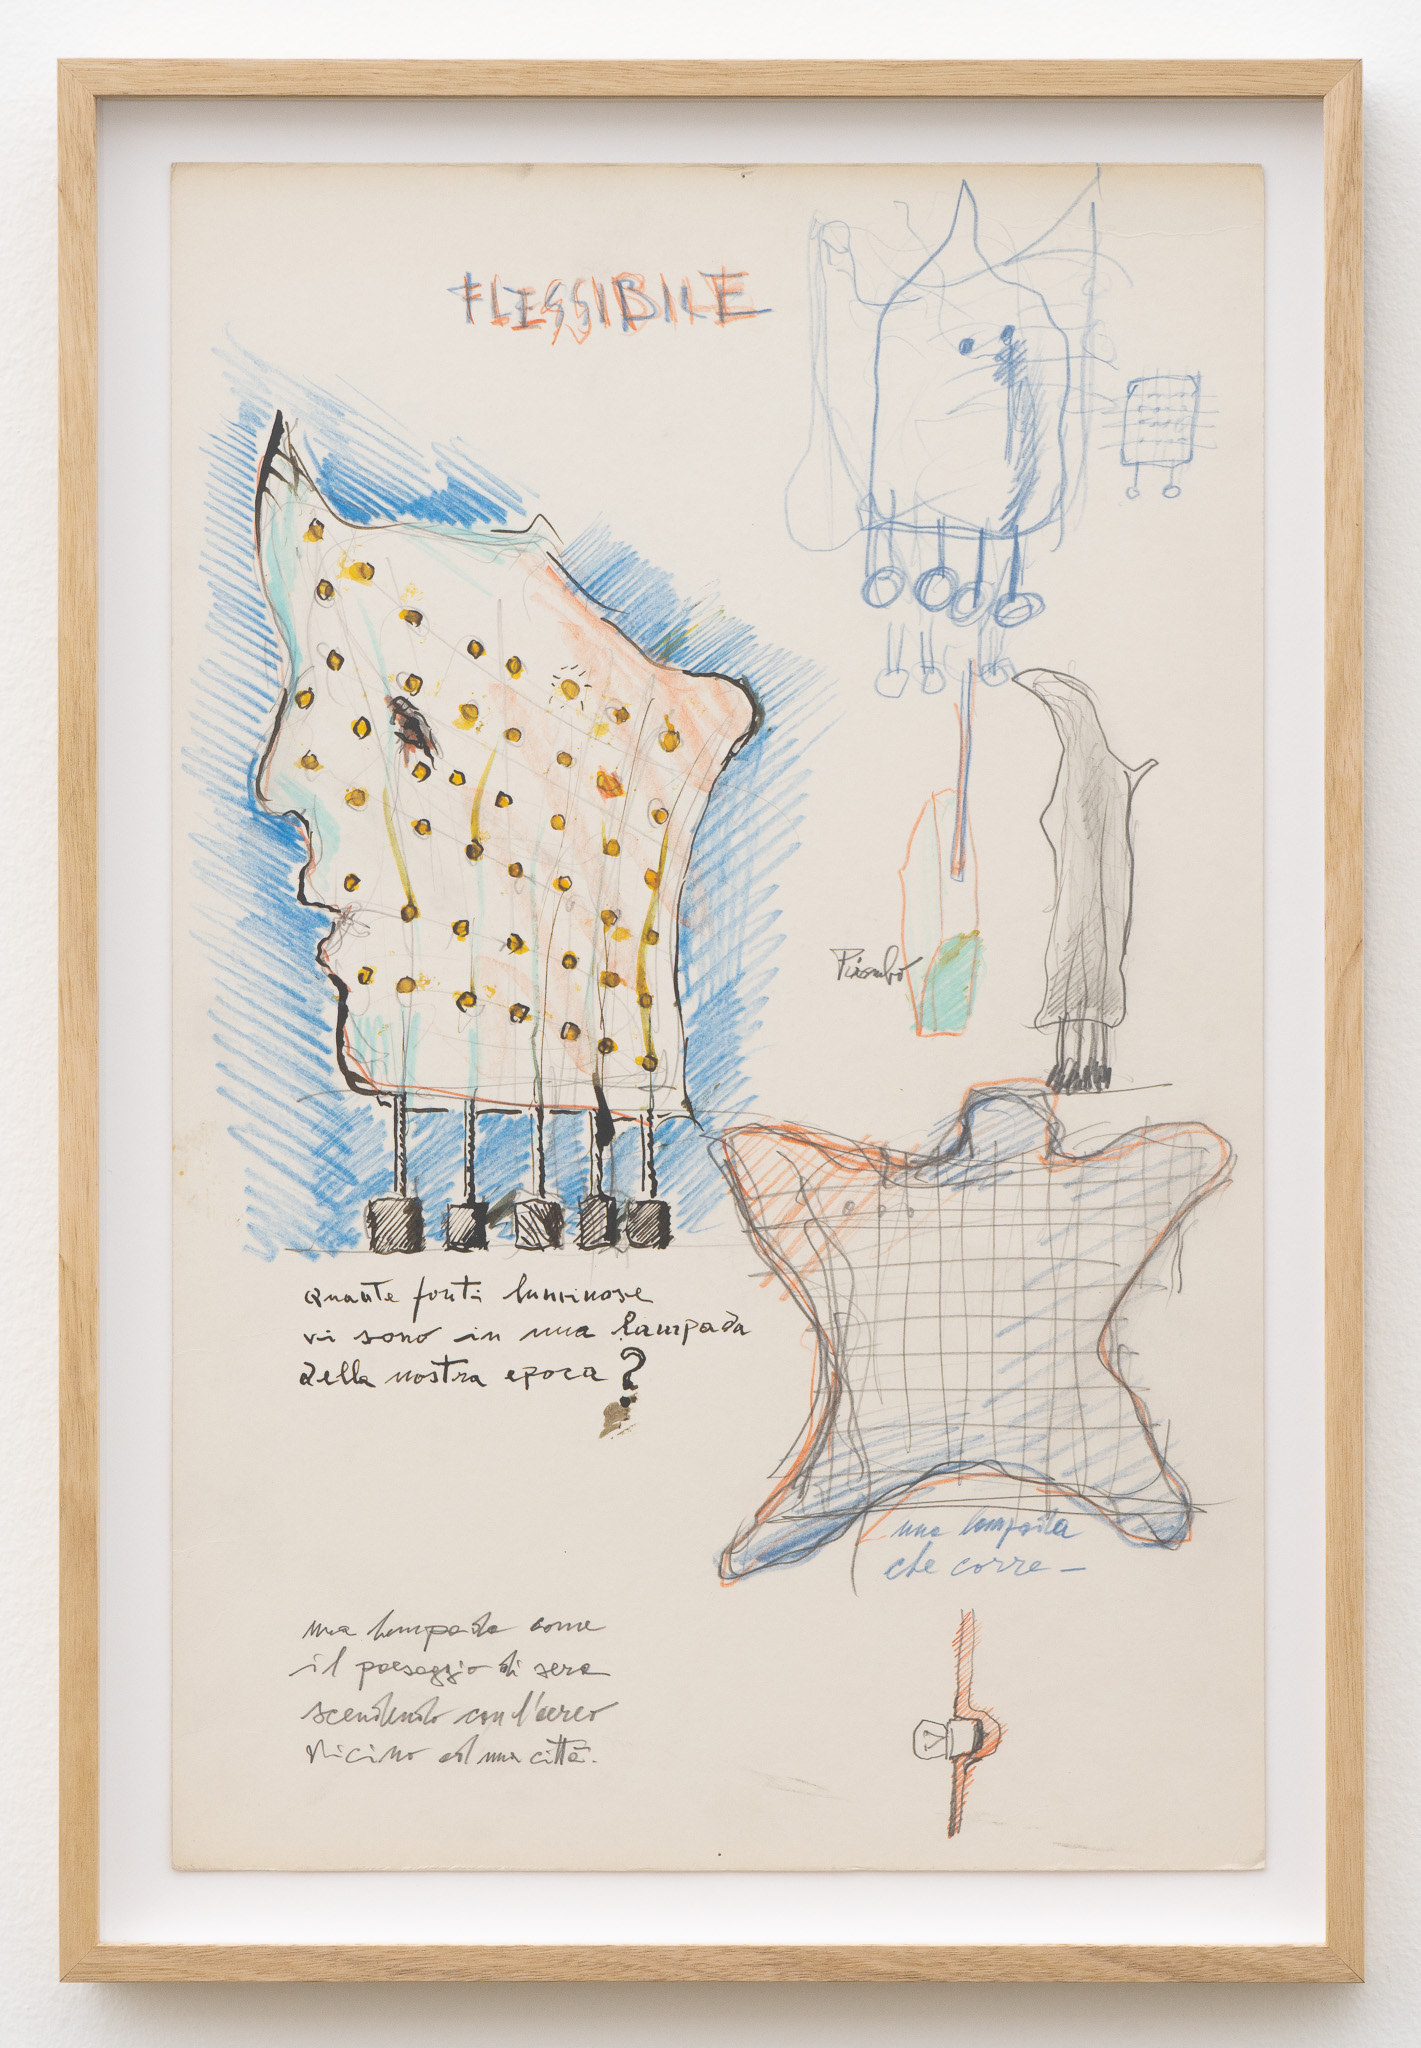 FLESSIBILE
Piombo
quante fonti luminose
vi sono in una lampada
della nostra epoca?
una lampada
che corre –
una lampada come
il paesaggio di sera
scendendo con l'aereo
vicino ad una città.